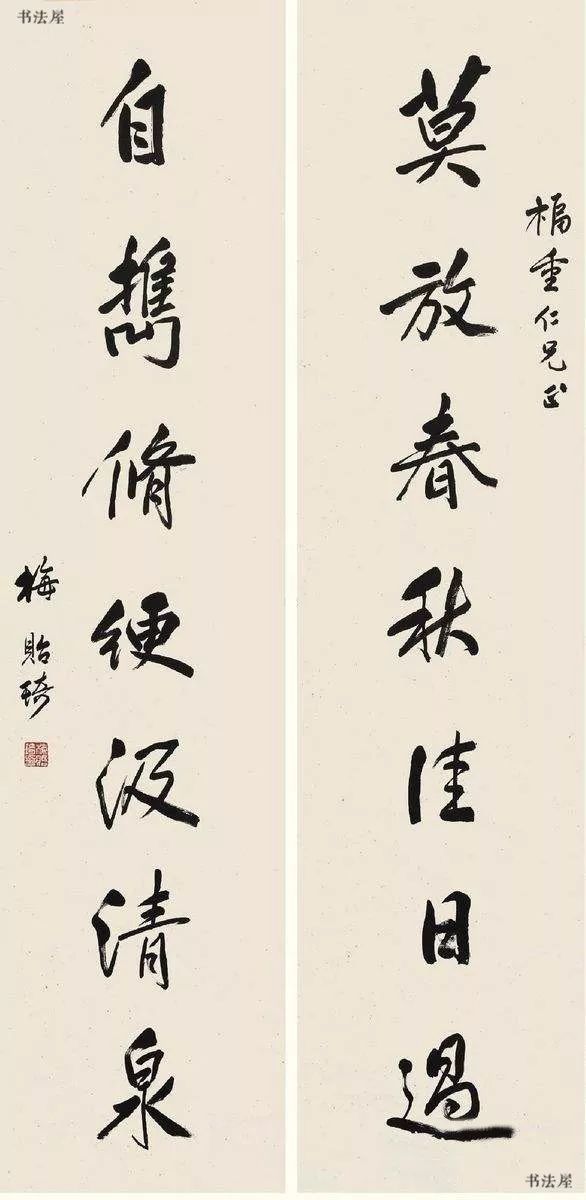 书法屋
重仁兄正
莫放春秋佳日過
自攜脩綆汲清泉
梅貽琦
书法屋